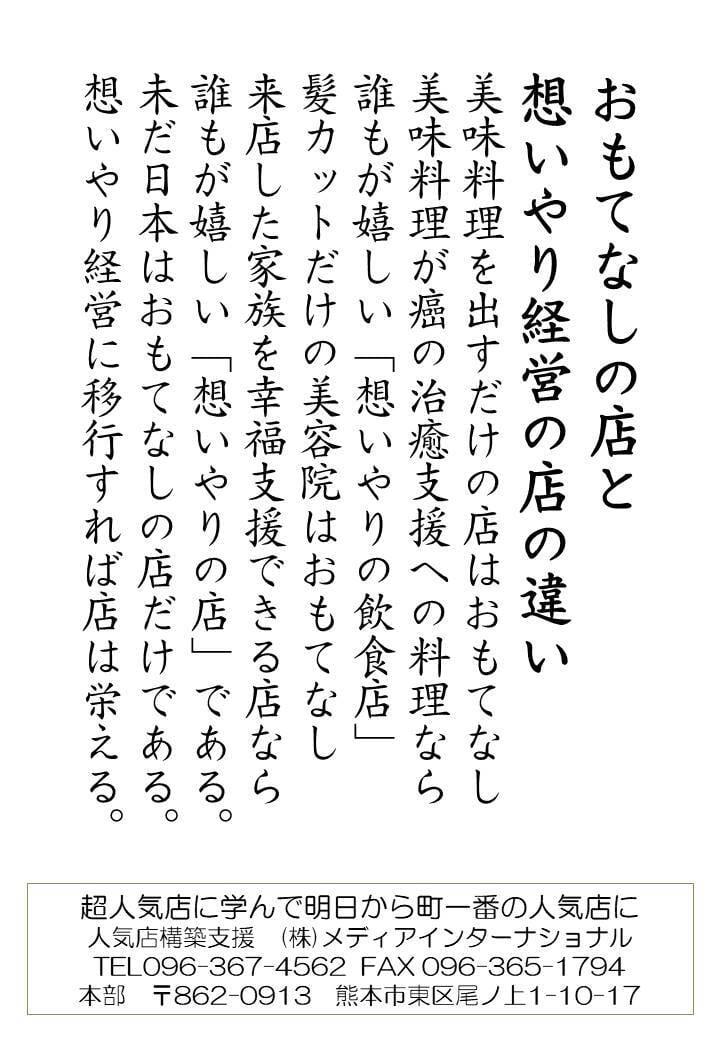 おもてなしの店と
想いやり経営の店の違い
美味料理を出すだけの店はおもてなし
美味料理が癌の治癒支援への料理なら
誰もが嬉しい「想いやりの飲食店」
髪カットだけの美容院はおもてなし
来店した家族を幸福支援できる店なら
誰もが嬉しい「想いやりの店」である。
未だ日本はおもてなしの店だけである。
想いやり経営に移行すれば店は栄える。
超人気店に学んで明日から町一番の人気店に
人気店構築支援　(株)メディアインターナショナル
TEL096-367-4562 FAX 096-365-1794
本部　〒862-0913　熊本市東区尾ノ上1-10-17